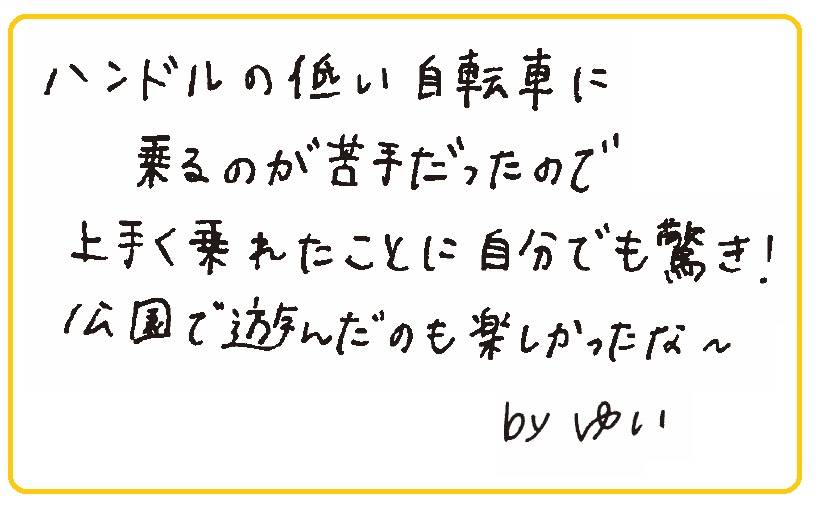 ハンドルの低い自転車に
乗るのが苦手だったので
上手く乗れたことに自分でも驚き!
公園で遊んだのも楽しかったな~
by ゆい